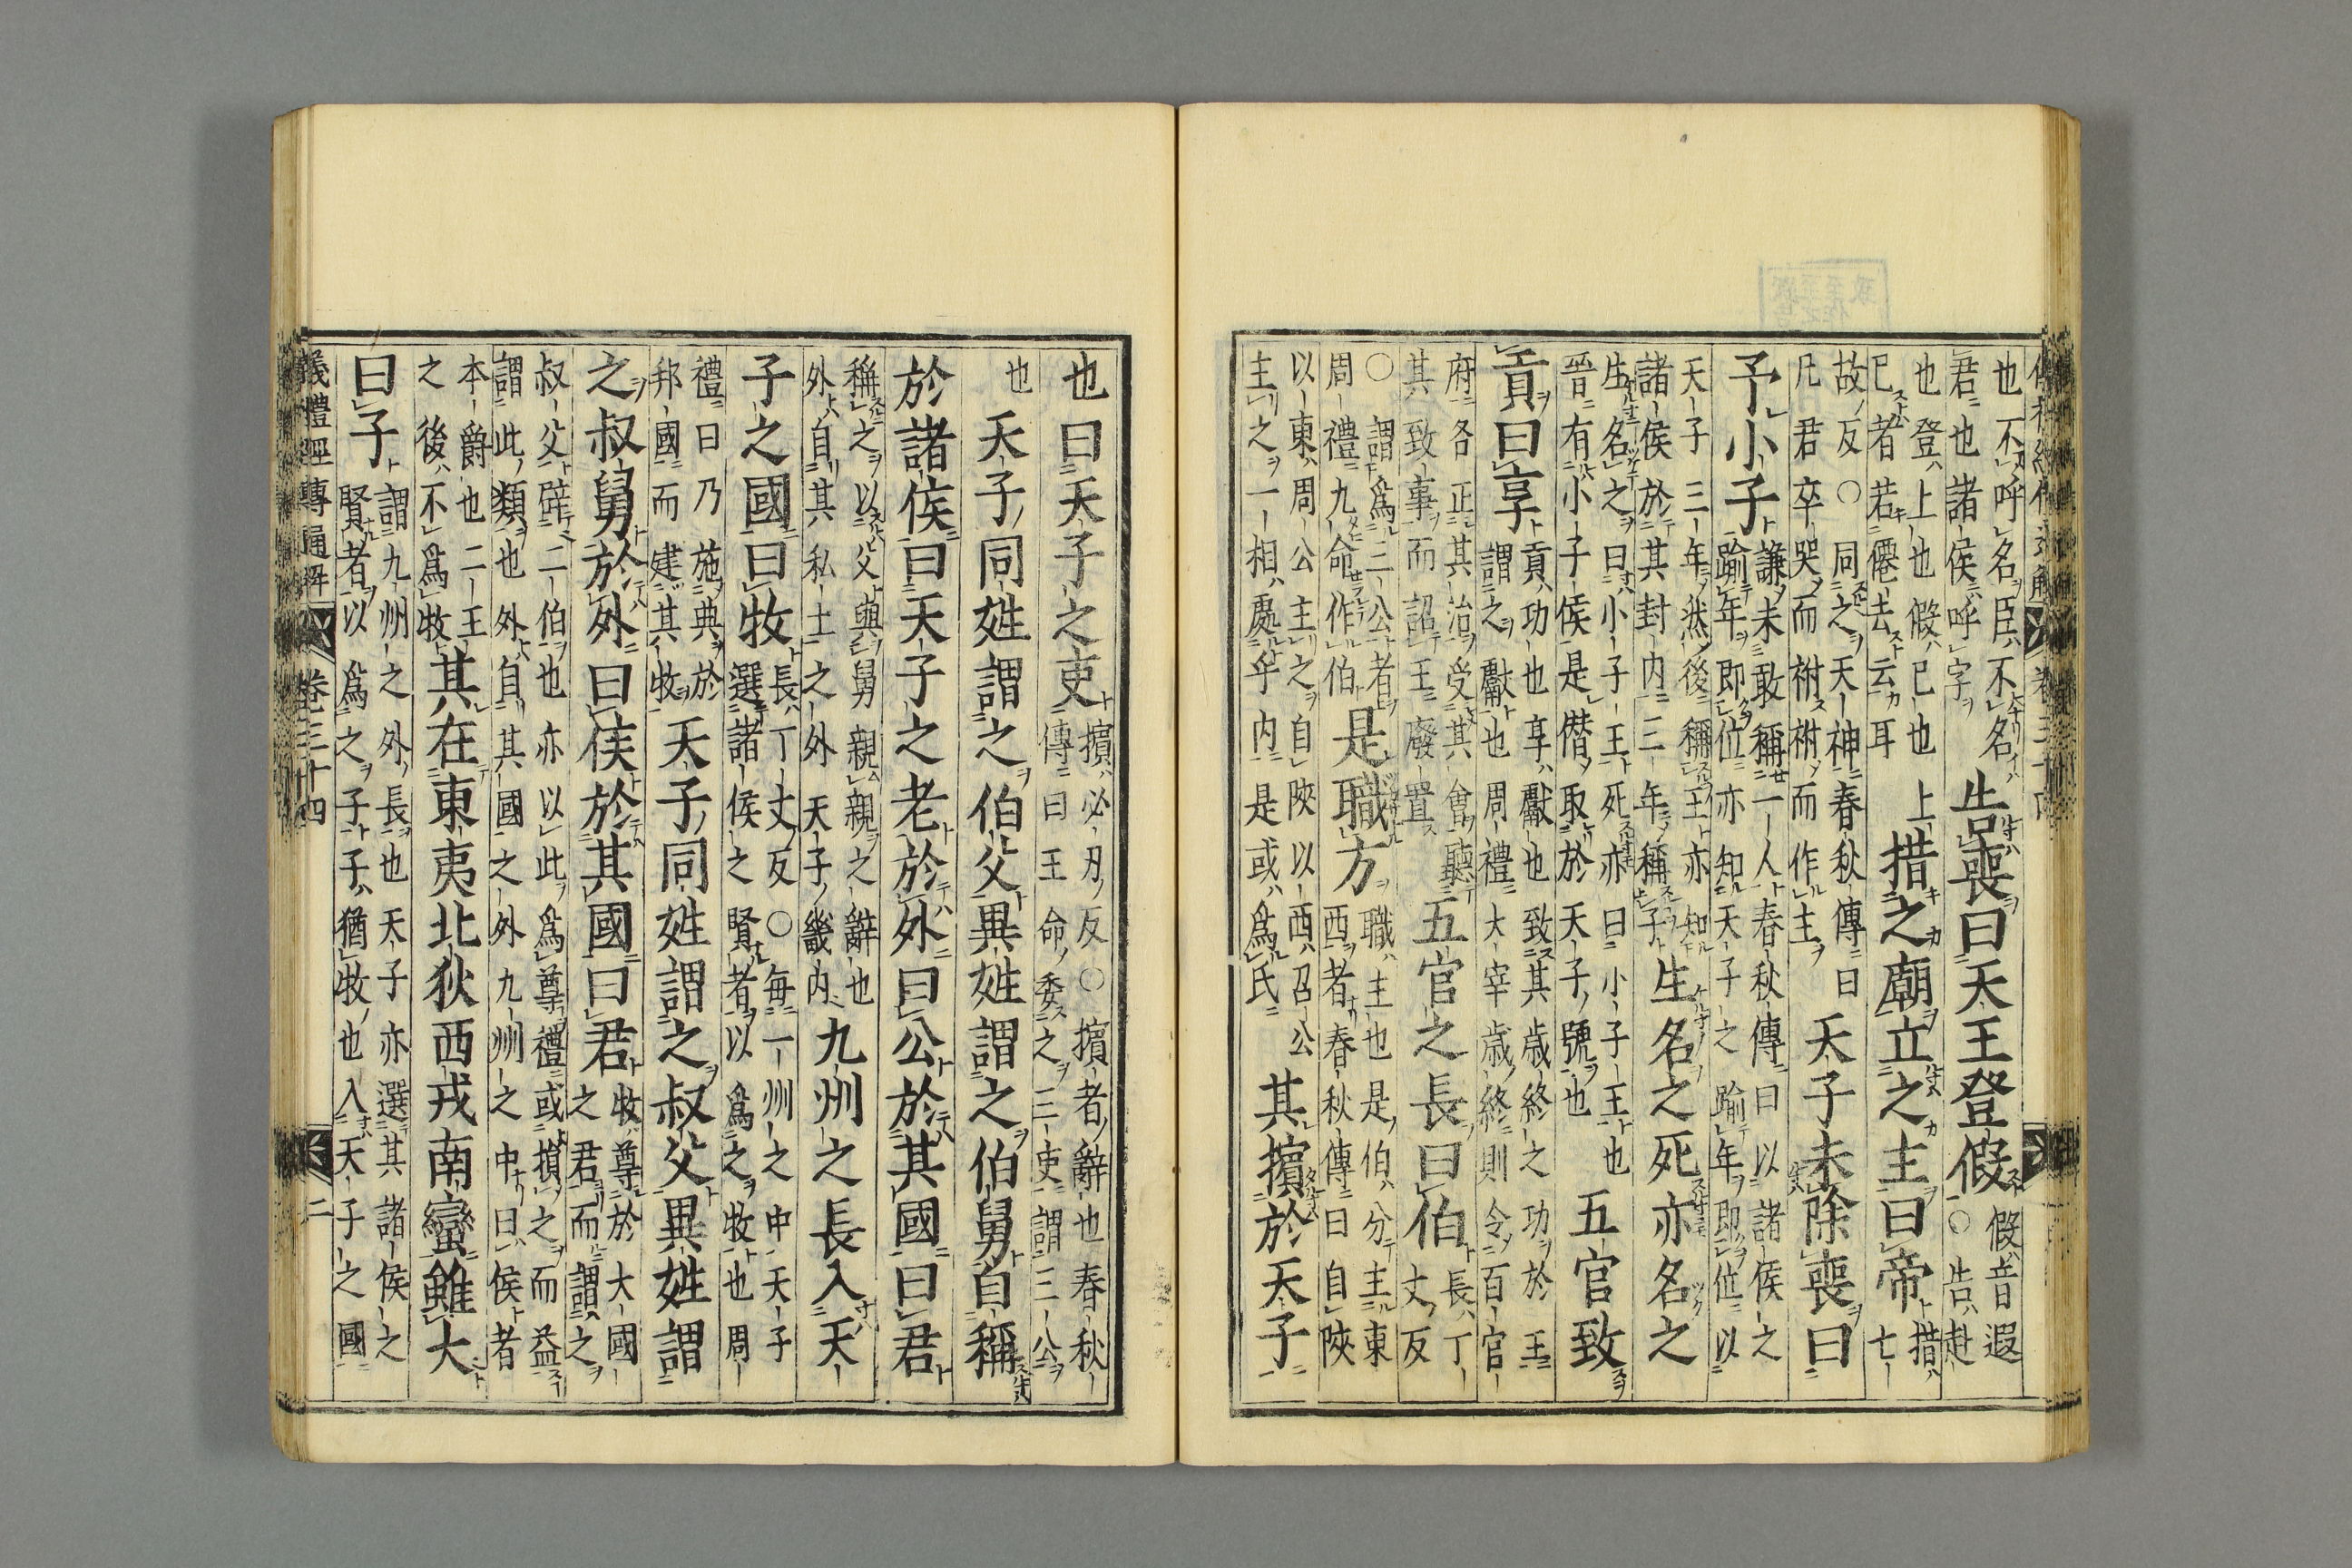 也不呼名臣不名
君也諸侯呼字
告喪曰天王登假
假音遐
○告赴
也登上也假已也上
已者若僊去云耳
措之廟立之主曰帝
措
七
故反○同之天神春秋傳曰
凡君卒哭而祔祔而作主
天子未除喪曰
予小子
謙未敢稱一人春秋傳曰以諸侯之
踰年即位亦知天子之踰年即位以
天子三年然後稱王亦知
諸侯於其封内三年稱子
生名之死亦名之
生名之曰小子王死亦曰小子王也
晉有小子侯是僭取於天子號也
五官致
貢曰享
貢功也享獻也致其歲終之功於王
謂之獻也周禮大宰歲終則令百官
府各正其治受其會聽
其致事而詔王廢置
五官之長曰伯
長丁
丈反
○謂爲三公者
周禮九命作伯
是職方
職主也是伯分主東
西者春秋傳曰自陝
以東周公主之自陝以西召公
主之一相處乎内是或爲氏
其擯於天子
也曰天子之吏
擯必刃反○擯者辭也春秋
傳曰王命委之三吏謂三公
也
天子同姓謂之伯父異姓謂之伯舅自稱
於諸侯曰天子之老於外曰公於其國曰君
稱之以父與舅親親之辭也
外自其私土之外天子畿内
九州之長入天
子之國曰牧
長丁丈反○每一州之中天子
選諸侯之賢者以爲之牧也周
禮曰乃施典於
邦國而建其牧
天子同姓謂之叔父異姓謂
之叔舅於外曰侯於其國曰君
牧尊於大國
之君而謂之
叔父辟二伯也亦以此爲尊禮或損之而益
謂此類也外自其國之外九州之中曰侯者
本爵也二王
之後不爲牧
其在東夷北狄西戎南蠻雖大
曰子
謂九州之外長也天子亦選其諸侯之
賢者以爲之子子猶牧也入天子之國
儀禮經傳通解 卷三十四 二